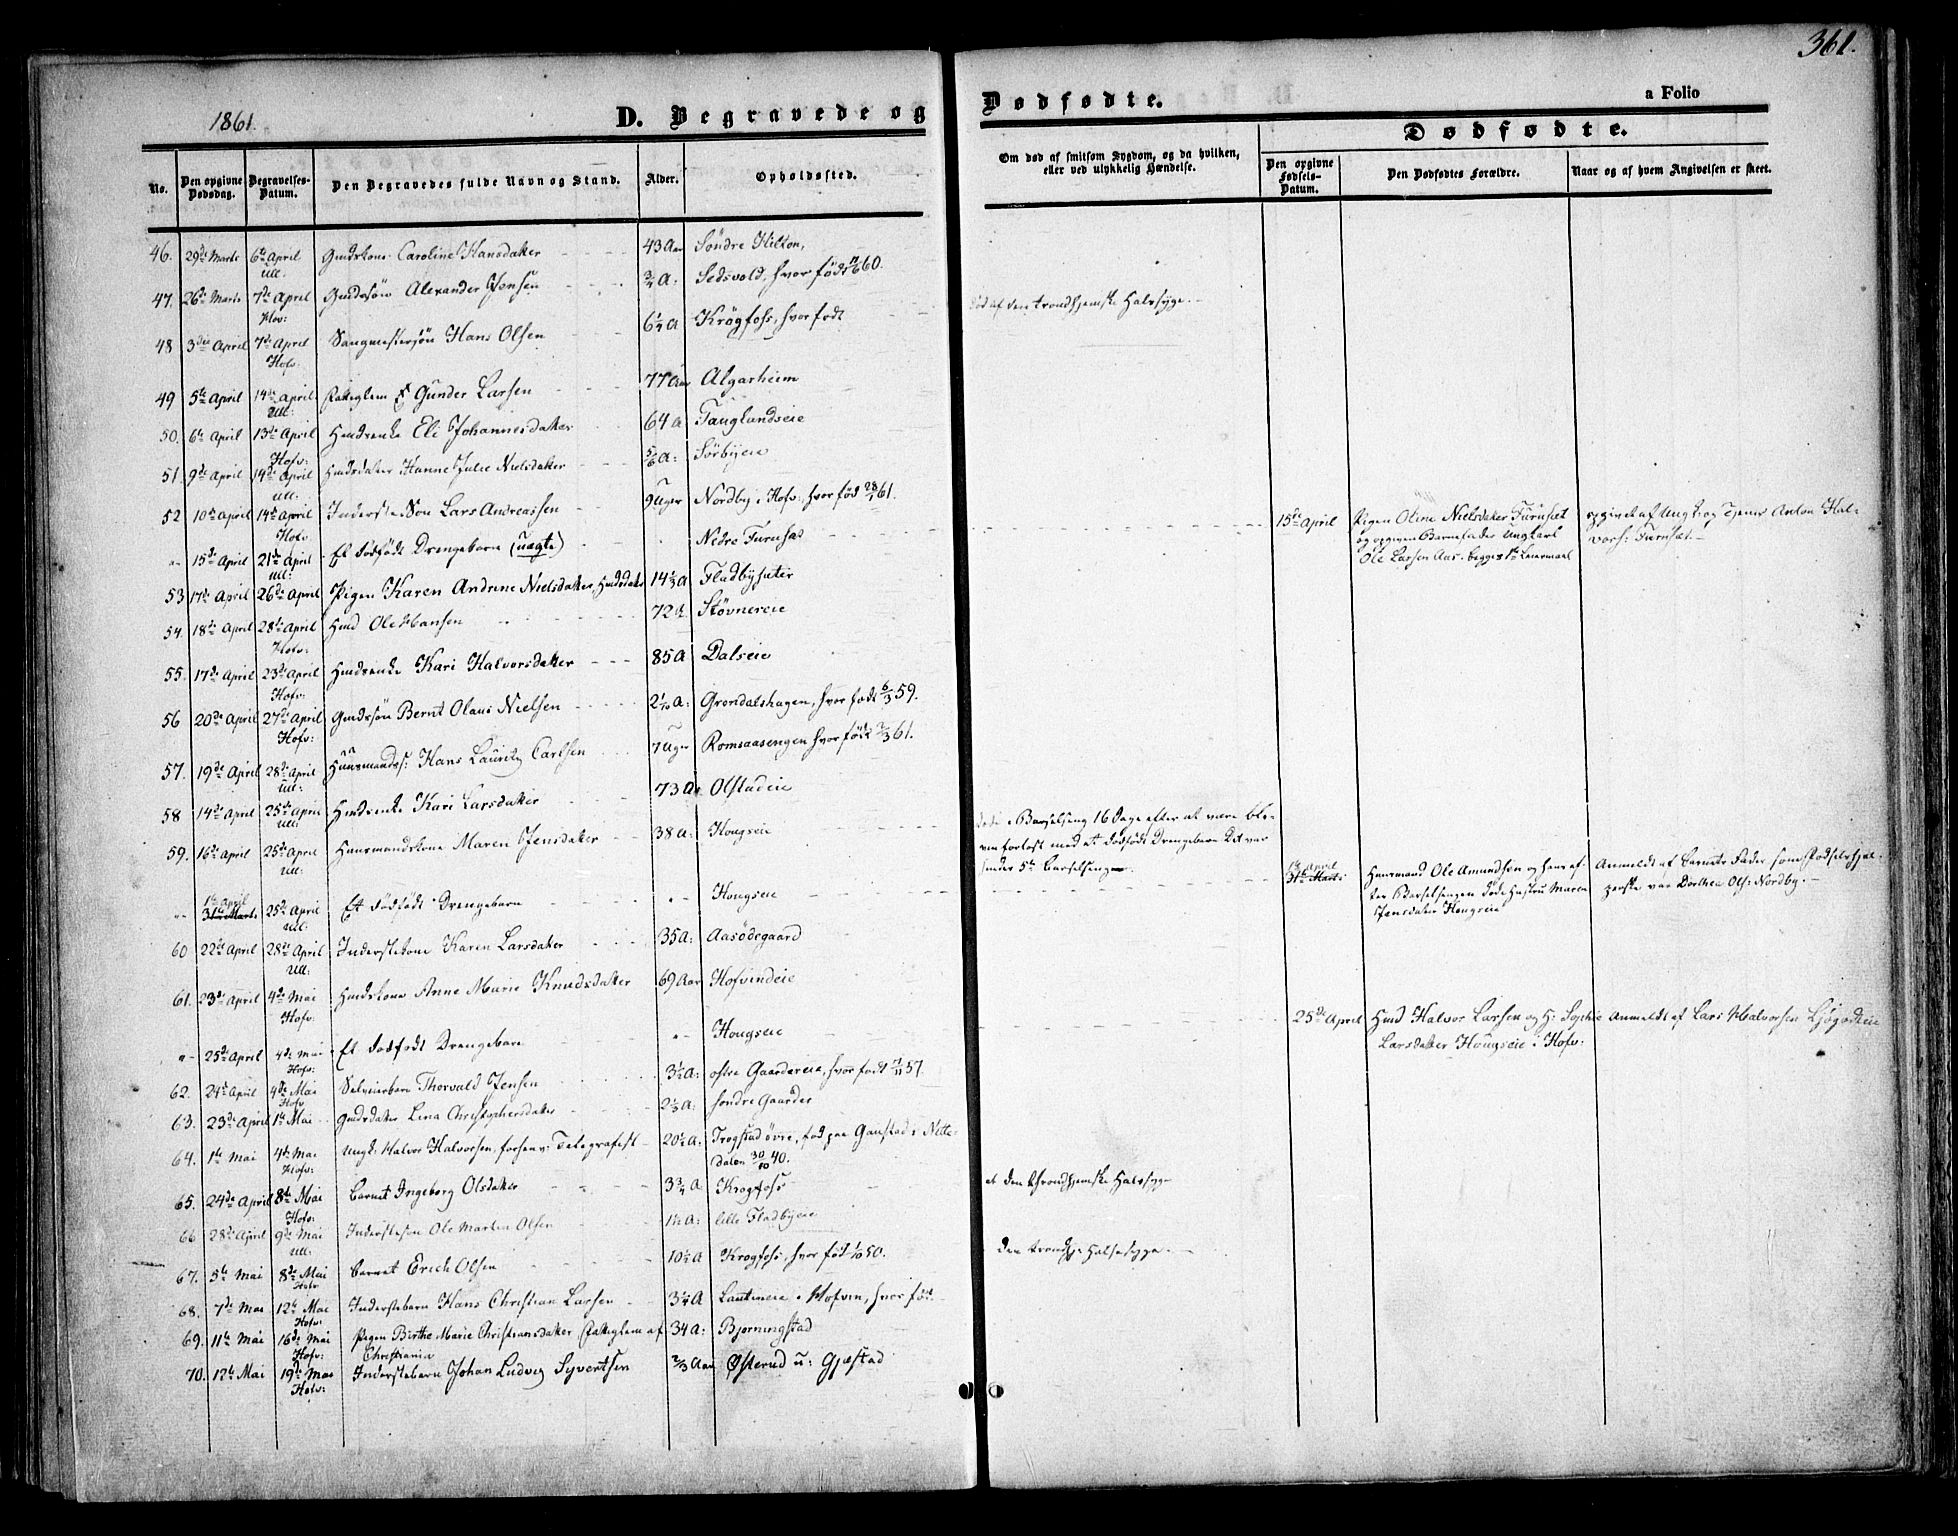 361.
1861.
D. Begravede og
Dødfødte.
a Folio
No.
Den opgivne Dødsdag.
Begravelses-Datum.
Den Begravedes fulde Navn og Stand.
Alder.
Opholdssted.
Om død af smitsom Sygdom, og da hvilken, eller ved ulykkelig Hændelse.
Dødfødte.
Den opgivne Fødsels-Datum.
Den Dødfødtes Forældre.
Naar og af hvem Angivelsen er skeet.
46. 29de Marts 6te April Ull: Gmdskone Caroline Hansdatter 43 Aar Søndre Hilton,
47. 26de Marts 7de April Hov: Gmdssøn Alexander Jensen 3/4 A: Sedsvold, hvor født 60.
død af den trondhjemske Halssyge.
48 3die April 7de April Hofv. Sangmestersøn Hans Olsen 6 1/4 A Krogfoss, hvor født
49 5te April 14de April Ull: Gunder Larsen 77 Aar Algarheim
50. 6te April 13de April Hofv: Hmdsenke Eli Johannesdatter 64 A Fauglandseie
51. 9de April 14de April Ull: Hmdsdatter Hanne Julie Nielsdatter 5/6 A: Sørbyeie
52 10de April 14de April Hofv. Inderste Søn Lars Andreassen 9 Uger Nordby i Hofv:, hvor fød 28/1 61.
" 15de April 21de April Ull: Et dødfødt Drengebarn (uægte) Nedre Furuset
15de April Pigen Oline Nielsdatter Furuset
og opgiven Barnefader Ungkarl
Ole Larsen Aas. begges 1ste Leiermaal
opgivet af Ungk. og Tjener Anton Hal-
vors: Furuset
53 17de April 26de April Pigen Karen Andrine Nielsdatter, Hmdsdatter 14 2/3 A Fladbysæter
54. 18de April 28de April Hofv: Hmd Ole Hansen 72 A Støvnereie
55. 17de April 23de April Hofv: Hmdsenke Kari Halvorsdatter 85 A Dalseie
56 20de April 27de April Hofv: Gmdssøn Bernt Olaus Nielsen 2 1/10 A: Grøndalshagen, hvor født 6/3 59.
57. 19de April 28de April Ull: Huusmandss: Hans Lauritz Carlsen 7 Uger Romsaasengen hvor født 2/3 61.
58 14de April 25de April Ull: Hmdsenke Kari Larsdatter 73 A Olstadeie
59. 16de April 25de April Ull: Huusmandskone Maren Jensdatter 38 A: Hougseie
døde i Barselseng 16 Dage efter at være ble-
ven forløst med et dødfødt Drengebarn Det var
hendes 5te Barselseng
" 1ste April 31te Marts 25de April Ull: Et dødfødt Drengebarn " Hougseie
1ste April
31te Marts Huusmand Ole Amundsen og hans ef-
ter Barselsengen døde Hustru Maren
Jensdatter Hougseie
Anmeldt af Barnets Fader som Fødselshjæl-
perske var Dorthea Ols: Nordby.
60 22de April 28de April Ull: Inderstekone Karen Larsdatter 35 A: Aasødegaard
61. 23de April 4de Mai Hofv: Hmdskone Anne Marie Knudsdatter 69 Aar Hofvindeie
" 25de April 4de Mai Hofv: Et dødfødt Drengebarn " Hougseie
25de April Hmd Halvor Larsen og H: Sophie
Larsdatter Hougseie i Hofv:
Anmeldt af Lars Halvorsen Ljøgodteie
62. 24de April 4de Mai Hofv Selveierbarn Thorvald Jensen 3 1/2 A: østre Gaardereie, hvor født 57.
63. 23de April 1ste Mai Gmdsdatter Lina Christophersdatter 2 1/3 A: søndre Gaarder
64. 1ste Mai 4de Mai Hofv: Ungk: Halvor Halvorsen, forhenv: Telegrafist 20 1/2 A: Trogstad øvre, fød paa Gaustad i Nitte-
dalen 30/10 40.
65. 24de April 8de Mai Hofv: Barnet Ingeborg Olsdatter 3 3/4 A Krogfoss
af den throndhjemske Halssyge
66 28de April 9de Mai Ull: Inderstesøn Ole Martin Olsen 1 1/2 A: lille Fladbyeie
67. 5te Mai 8de Mai Hofv Barnet Erich Olsen 10 1/2 A Krogfoss, hvor fød 1/10 50.
den trondhj: Halssyge
68. 7de Mai 12te Mai Hofv: Inderstebarn Hans Christian Larsen 3 1/4 A Lauteneie i Hofvin, hvor fød.
69. 11te Mai 16de Mai Hofv: Pigen Birthe Marie Christiansdatter Fattiglem af Christiania 34 A: Bjørningstad
70. 12te Mai 19de Mai Hofv: Inderstebarn Johan Ludvig Syvertsen 2/3 Aar Østerud u: Gjæstad